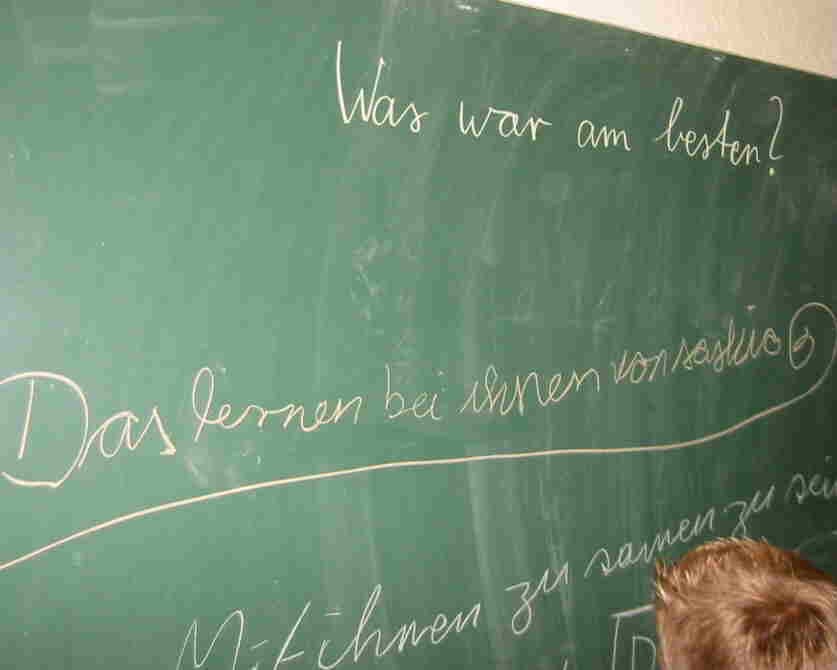 Was war am besten?
Das lernen bei ihnen von
Mit ihnen zu samen zu sein